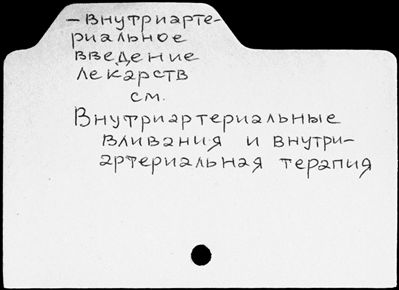 – Внутриарте-
риальное
введение
лекарств
см.
Внутриартериальные
вливания и внутри-
артериальная терапия